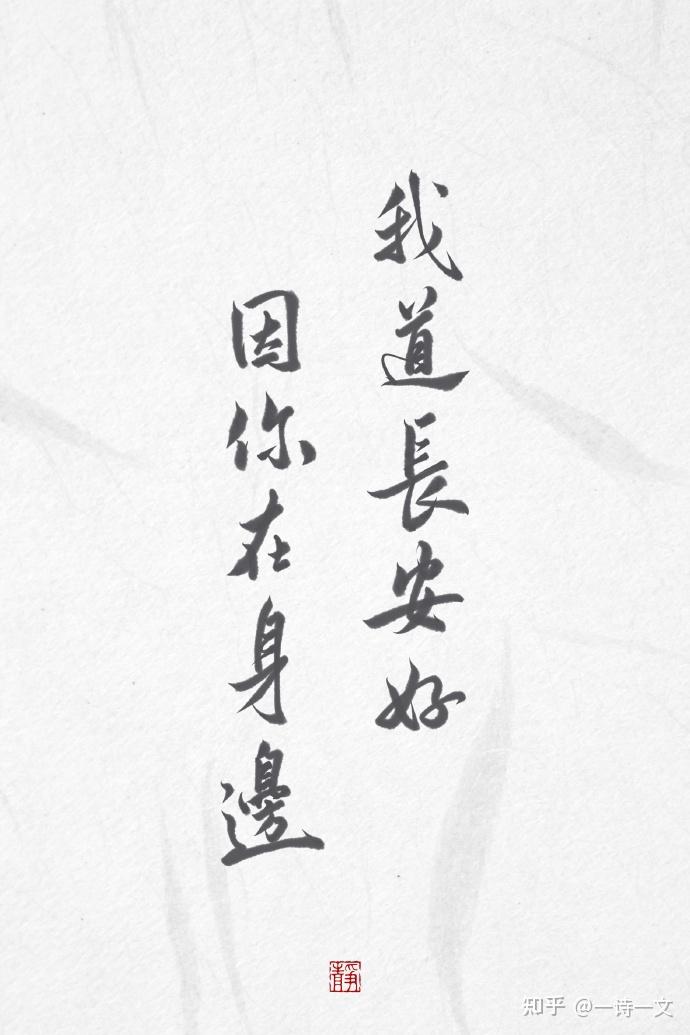 我道長安好
因你在身邊
靜
知乎 @一诗一文